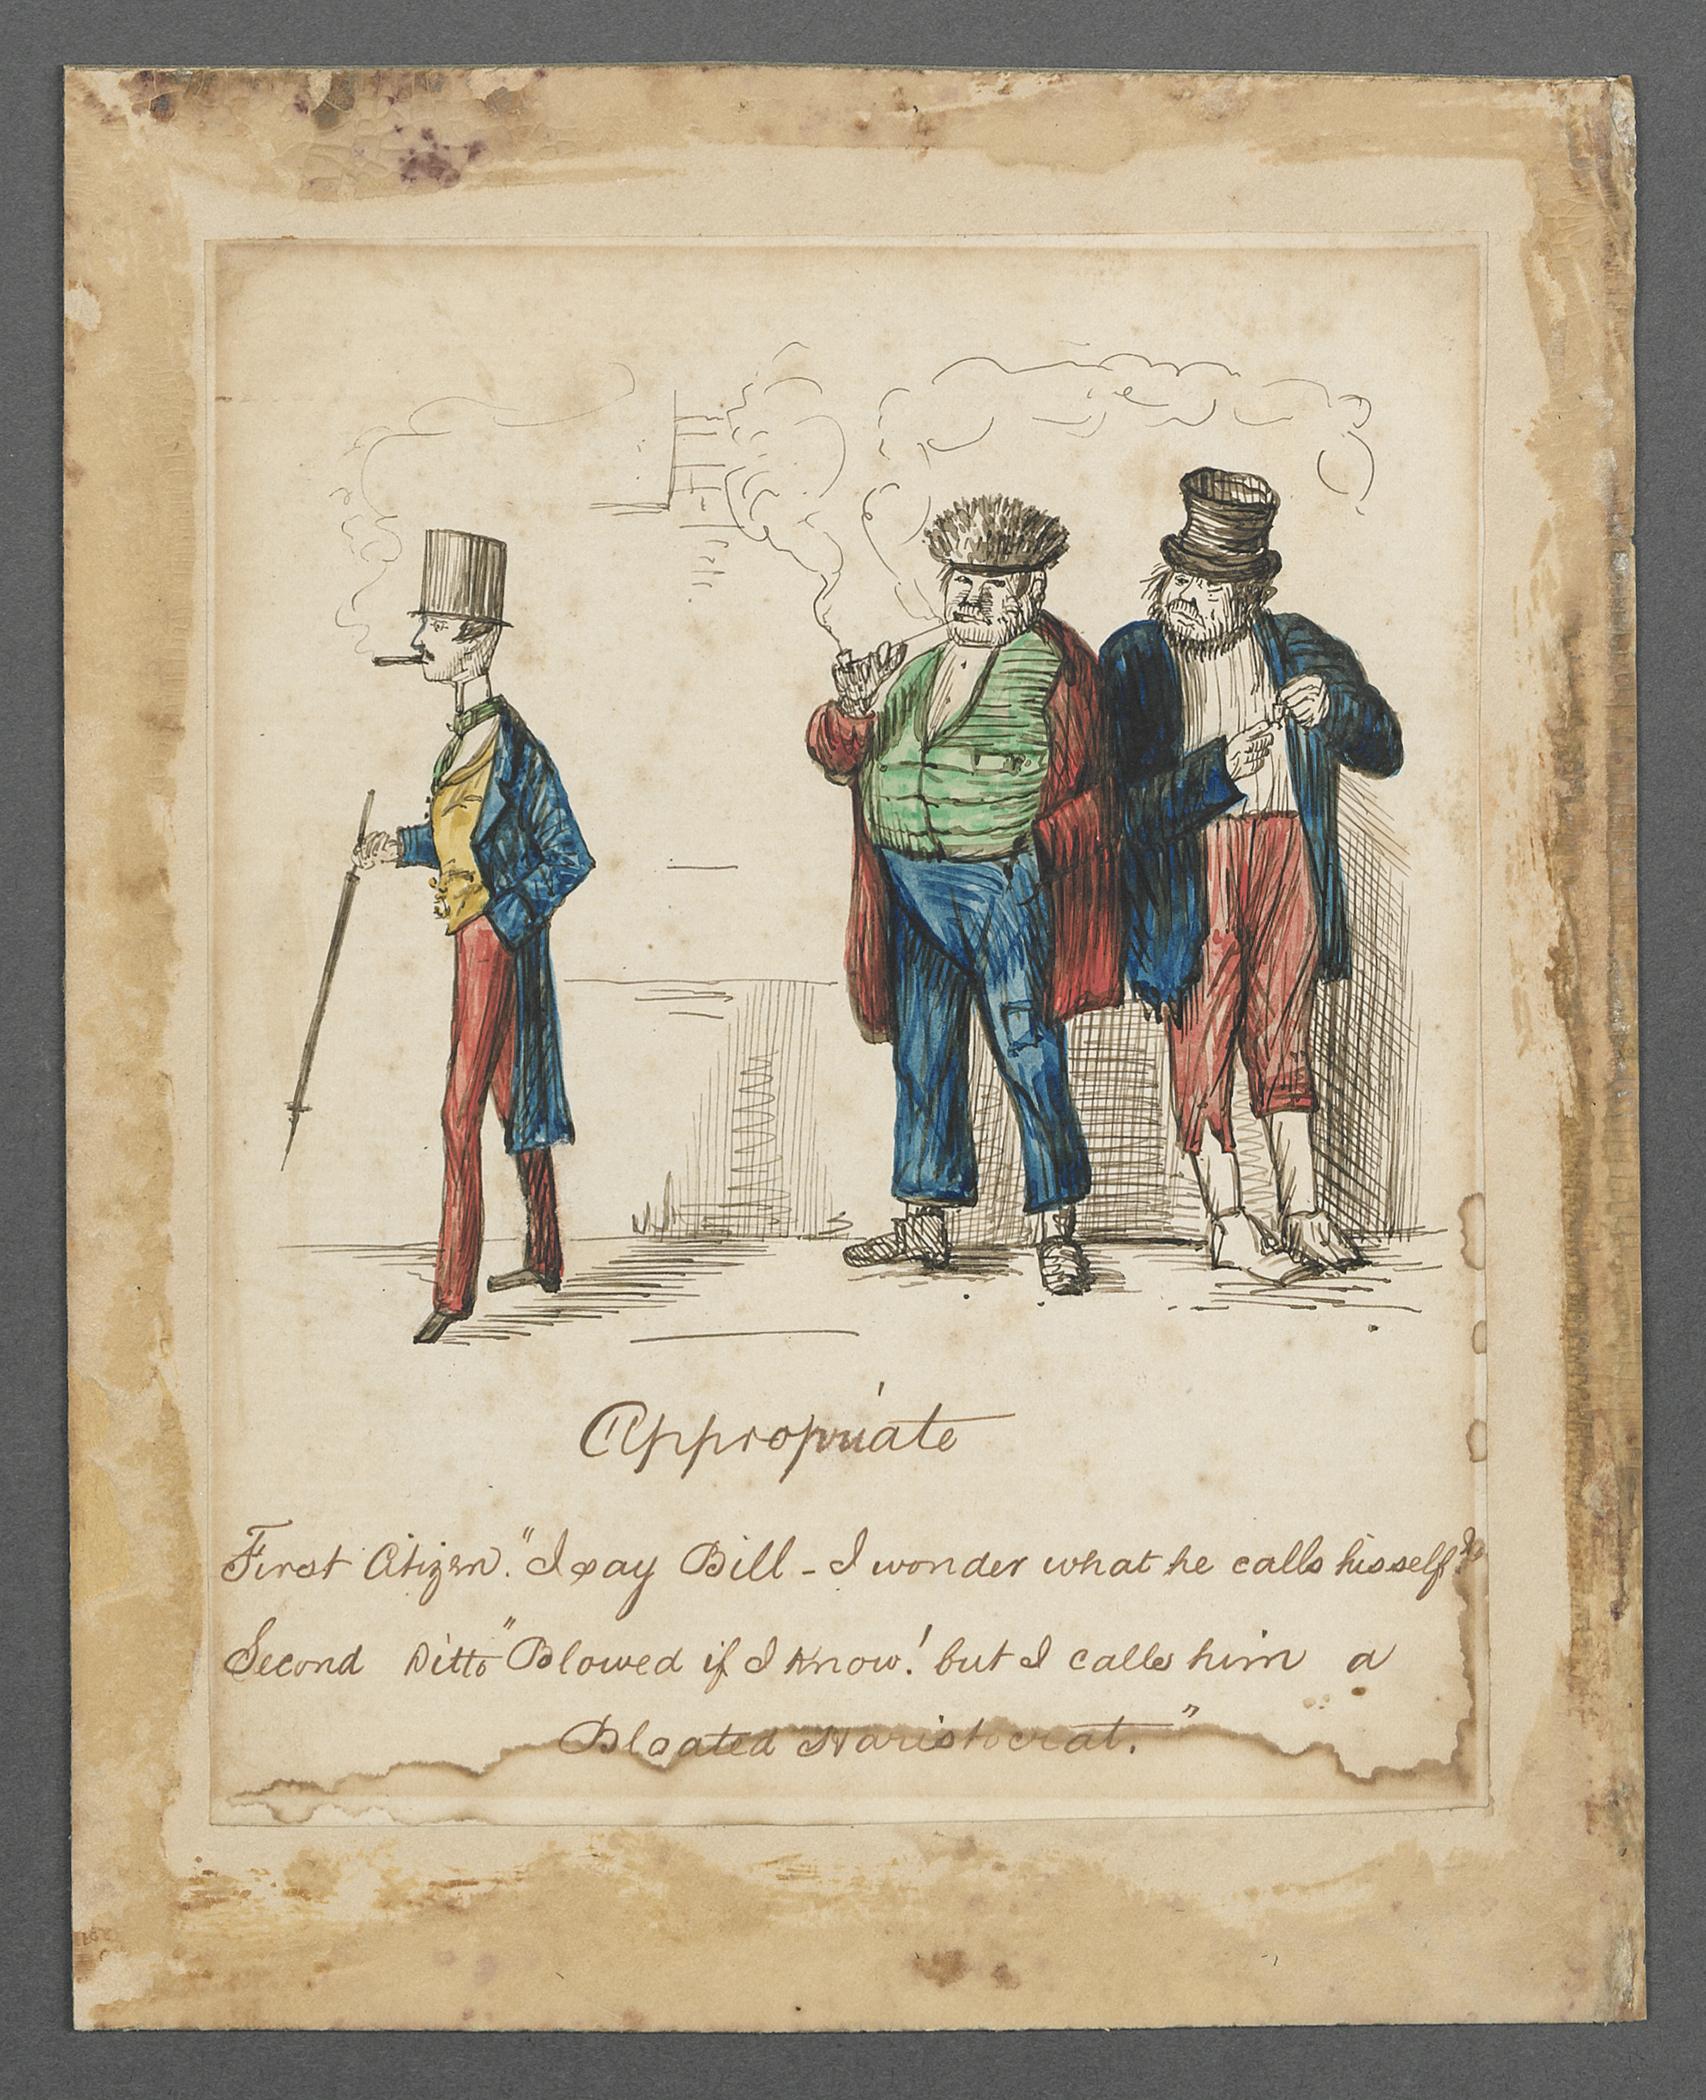 Appropriate
First Citizen. "I say Bill - I wonder what he calls hisself?"
Second Ditto "Blowed if I know! but I calls him a
Bloated Haristocrat."